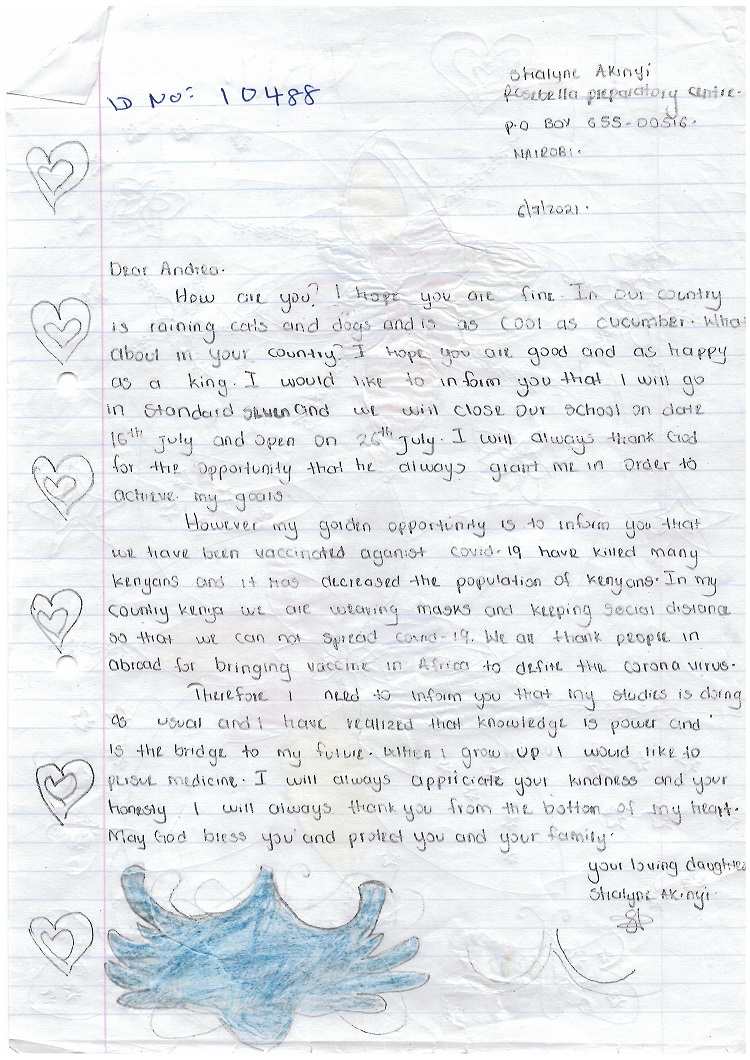 ID No: 10488
Shalyne Akinyi
Rosebella preparatory centre.
P.O BOX 655-00516.
NAIROBI.
6/7/2021.
Dear Andrea.
How are you? I hope you are fine. In our country
is raining cats and dogs and is as cool as cucumber. What
about in your country? I hope you are good and as happy
as a king. I would like to inform you that I will go
in standard seven and we will close our school on date
16th July and open on 26th July. I will always thank God
for the opportunity that he always grant me in order to
achieve my goals
However my golden opportunity is to inform you that
we have been vaccinated aganist covid-19 have killed many
kenyans and it has decreased the population of kenyans. In my
country kenya we are wearing masks and keeping social distance
so that we can not spread covid-19. We all thank people in
abroad for bringing vaccine in Africa to define the corona virus.
Therefore I need to inform you that my studies is doing
as usual and I have realized that knowledge is power and
is the bridge to my future. When I grow up I would like to
pursue medicine. I will always appriciate your kindness and your
honesty I will always thank you from the bottom of my heart.
May God bless you and protect you and your family.
your loving daughter
Shalyne Akinyi.